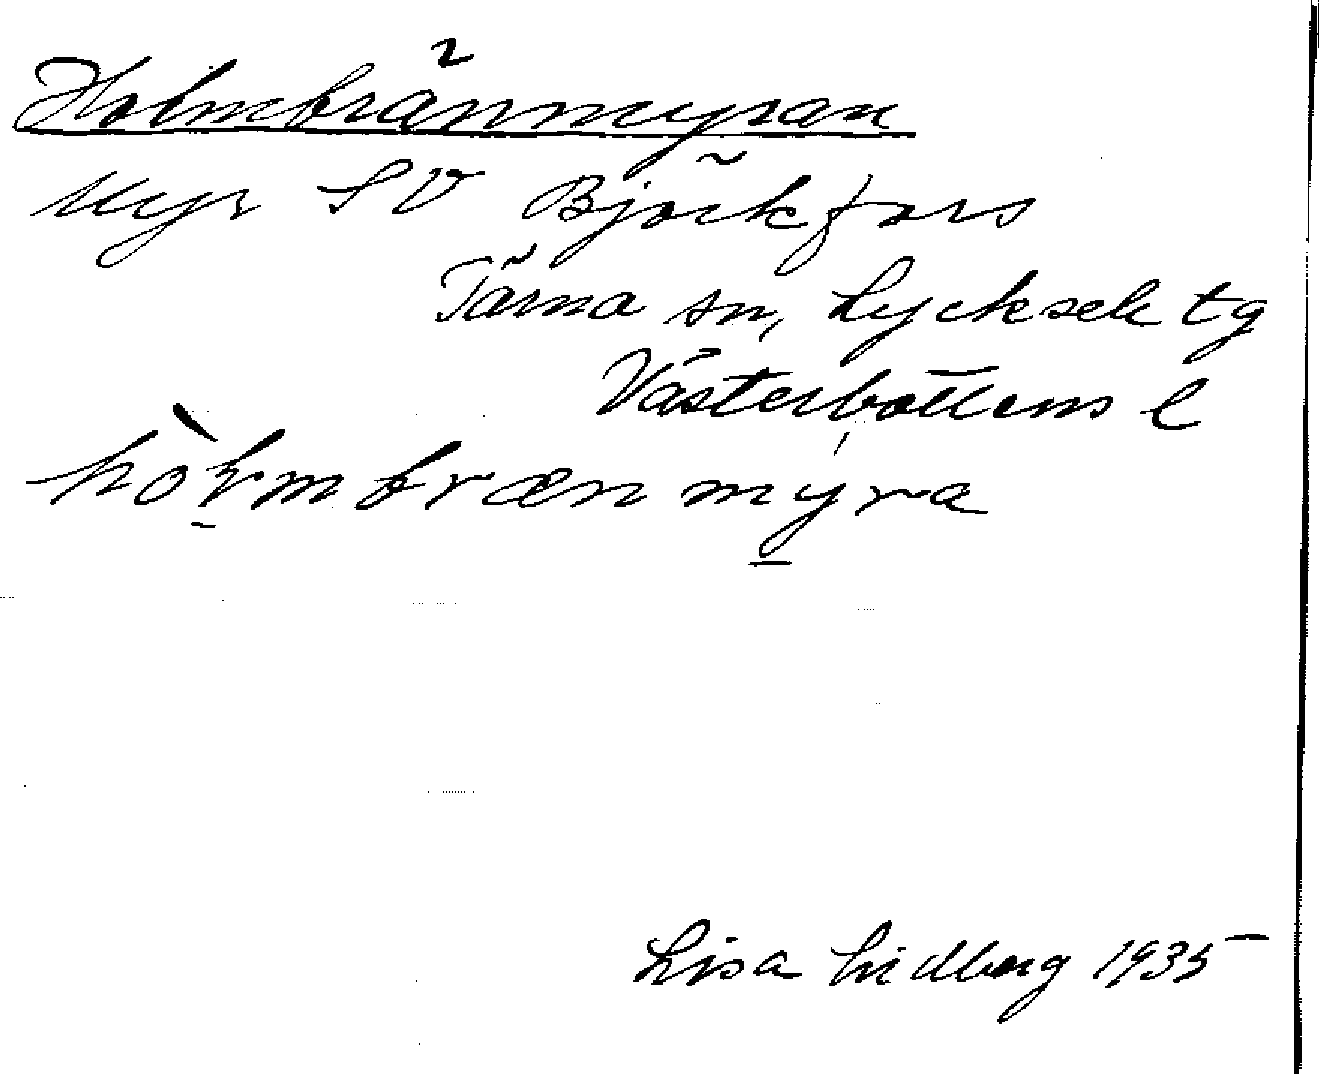 Holmbrännmyran
Myr SV Björkfors
Tärna sn, Lycksele tg
Västerbottens l
Lisa Lidberg 1935